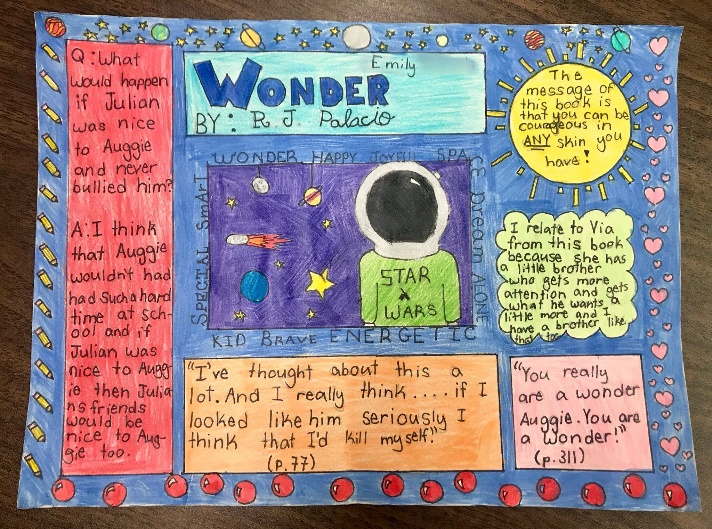 Q: What
would happen
if Julian
was nice
to Auggie
and never
bullied him?
A: I think
that Auggie
wouldn't had
had such a hard
time at sch-
ool and if
Julian was
nice to Augg
ie then Julia
ns friends
would be
nice to Aug-
gie too.
Emily
WONDER
BY: R. J. Palacio
WONDER HAPPY JOYFUL SPACE
Dream ALONE
SPECIAL SmArt
STAR
WARS
KID BRAVE ENERGETIC
The
message of
this book is
that you can be
courageous in
ANY skin you
have!
I relate to Via
from this book
because she has
a little brother
who gets more
attention and gets
what he wants a
little more and I
have a brother like
that too.
"I've thought about this a
lot. And I really think .... if I
looked like him seriously I
think that I'd kill myself."
(p.77)
"You really
are a wonder
Auggie. You are
a wonder!"
(p.311)